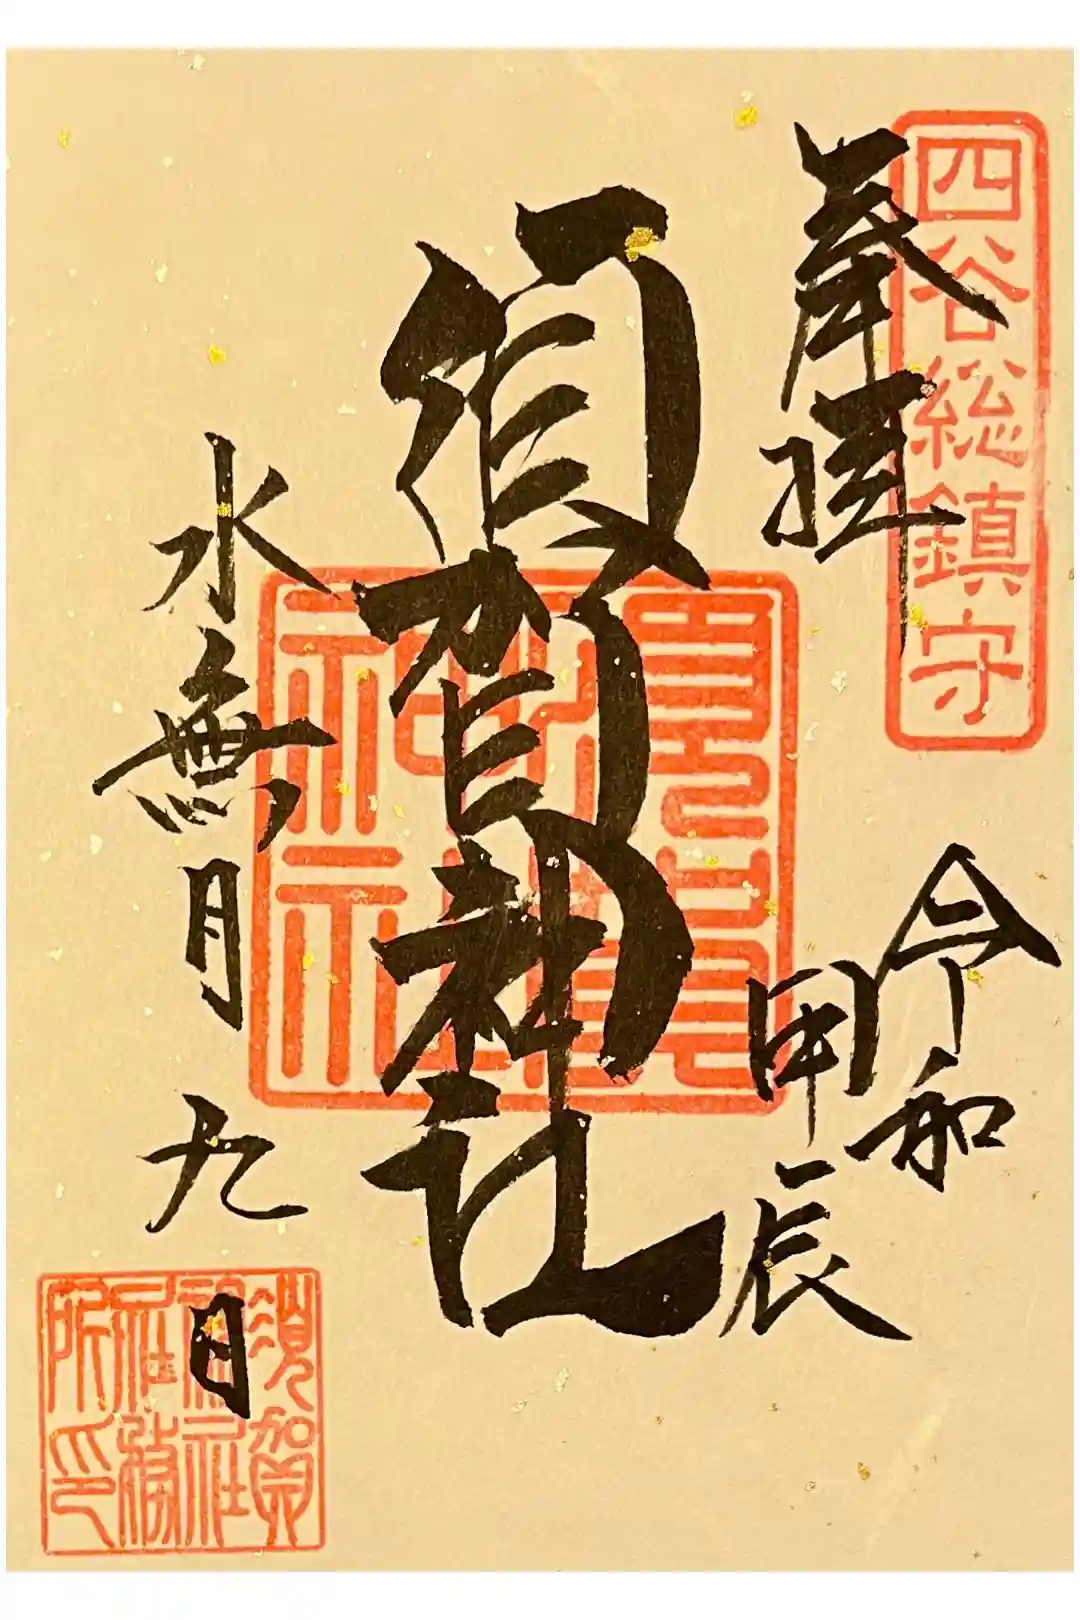 四谷総鎮守
奉拝
令和
甲辰
須賀神社
須賀神社
水無月九日
須賀神社社務所印